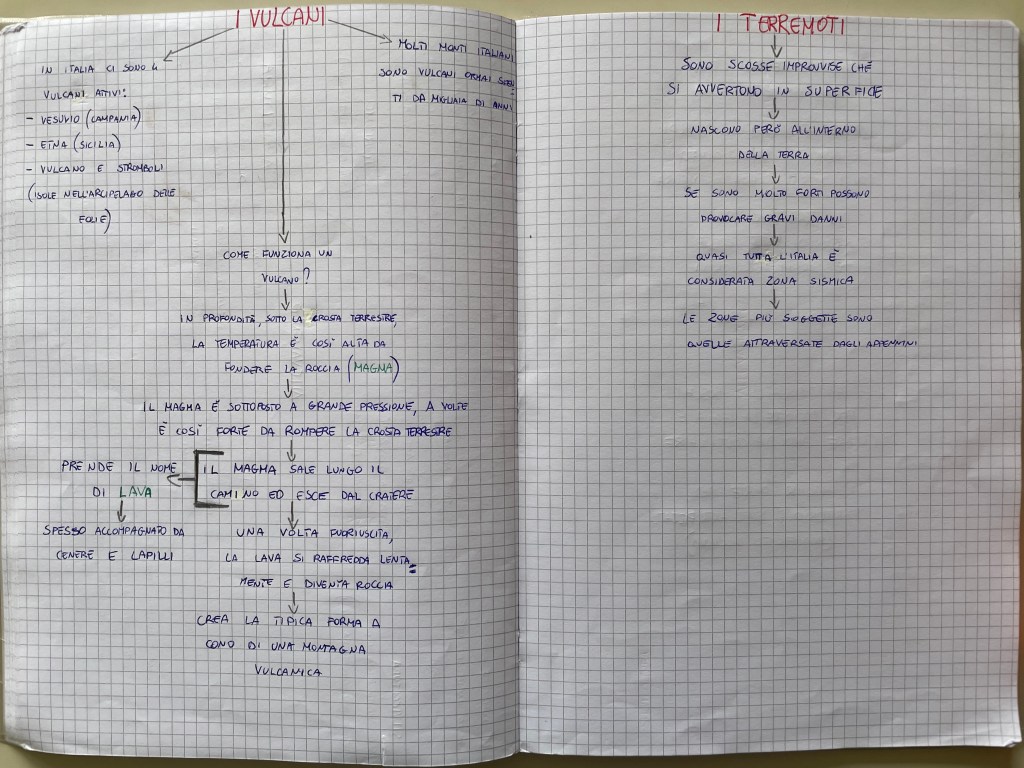 I VULCANI
IN ITALIA CI SONO 4
VULCANI ATTIVI:
- VESUVIO (CAMPANIA)
- ETNA (SICILIA)
- VULCANO E STROMBOLI
(ISOLE NELL'ARCIPELAGO DELLE
EOLIE)
MOLTI MONTI ITALIANI
SONO VULCANI ORMAI SPEN
TI DA MIGLIAIA DI ANNI
COME FUNZIONA UN
VULCANO?
IN PROFONDITÀ, SOTTO LA CROSTA TERRESTRE,
LA TEMPERATURA È COSÌ ALTA DA
FONDERE LA ROCCIA (MAGMA)
IL MAGMA È SOTTOPOSTO A GRANDE PRESSIONE, A VOLTE
È COSÌ FORTE DA ROMPERE LA CROSTA TERRESTRE
IL MAGMA SALE LUNGO IL
CAMINO ED ESCE DAL CRATERE
PRENDE IL NOME
DI LAVA
SPESSO ACCOMPAGNATO DA
CENERE E LAPILLI
UNA VOLTA FUORIUSCITA,
LA LAVA SI RAFFREDDA LENTA=
MENTE E DIVENTA ROCCIA
CREA LA TIPICA FORMA A
CONO DI UNA MONTAGNA
VULCANICA
I TERREMOTI
SONO SCOSSE IMPROVVISE CHE
SI AVVERTONO IN SUPERFICE
NASCONO PERÒ ALL'INTERNO
DELLA TERRA
SE SONO MOLTO FORTI POSSONO
PROVOCARE GRAVI DANNI
QUASI TUTTA L'ITALIA È
CONSIDERATA ZONA SISMICA
LE ZONE PIÙ SOGGETTE SONO
QUELLE ATTRAVERSATE DAGLI APPENNINI